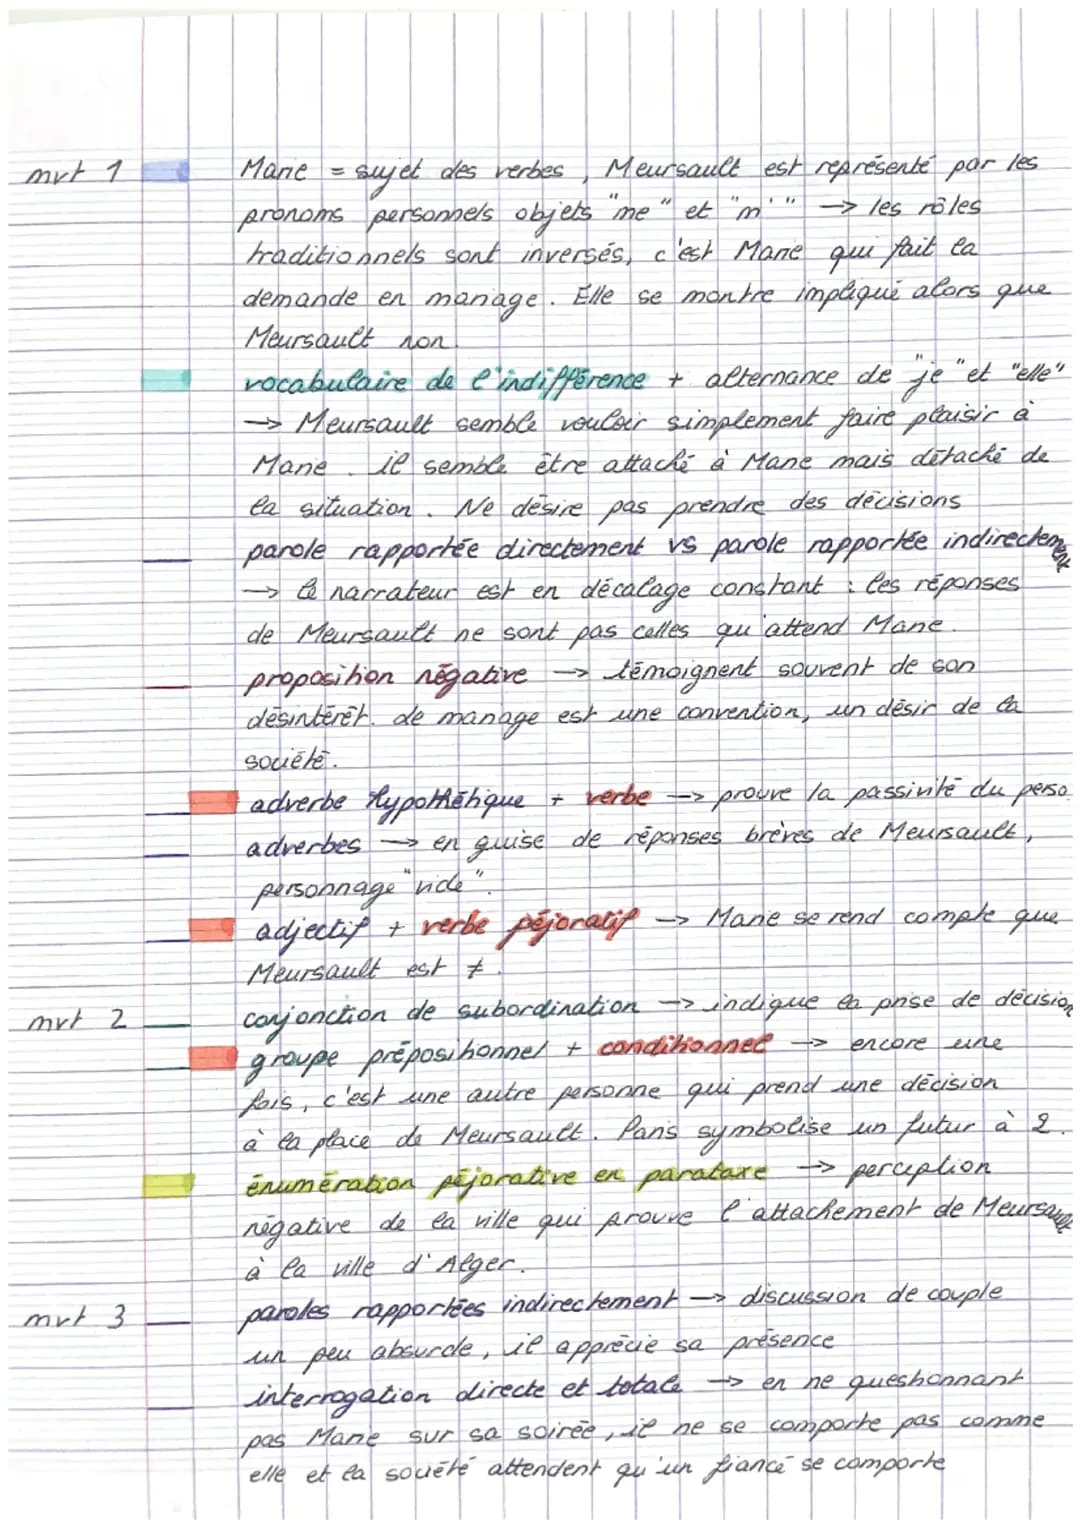 mvt 1 Marie = sujet des verbes, Meursault est représenté par les
pronoms personnels objets "me" et "m'" → les rôles
traditionnels sont inversés, c'est Marie qui fait la
demande en mariage. Elle se montre impliqué alors que
Meursault non.
vocabulaire de l'indifférence + alternance de "je" et "elle"
→ Meursault semble vouloir simplement faire plaisir à
Marie. il semble être attaché à Marie mais détaché de
la situation. Ne désire pas prendre des décisions
parole rapportée directement vs parole rapportée indirectement
→ le narrateur est en décalage constant : les réponses
de Meursault ne sont pas celles qu'attend Marie.
proposition négative → témoignent souvent de son
désintérêt. Le mariage est une convention, un désir de la
société.
adverbe hypothétique + verbe → prouve la passivité du perso.
adverbes → en guise de réponses brèves de Meursault,
personnage "vide".
adjectif + verbe péjoratif → Marie se rend compte que
Meursault est ≠.
mvt 2 conjonction de subordination → indique la prise de décision
groupe prépositionnel + conditionnel → encore une
fois, c'est une autre personne qui prend une décision
à la place de Meursault. Paris symbolise un futur à 2.
énumération péjorative en parataxe → perception
négative de la ville qui prouve l'attachement de Meursault
à la ville d'Alger.
mvt 3 paroles rapportées indirectement → discussion de couple
un peu absurde, il apprécie sa présence
interrogation directe et totale → en ne questionnant
pas Marie sur sa soirée, il ne se comporte pas comme
elle et la société attendent qu'un fiancé se comporte